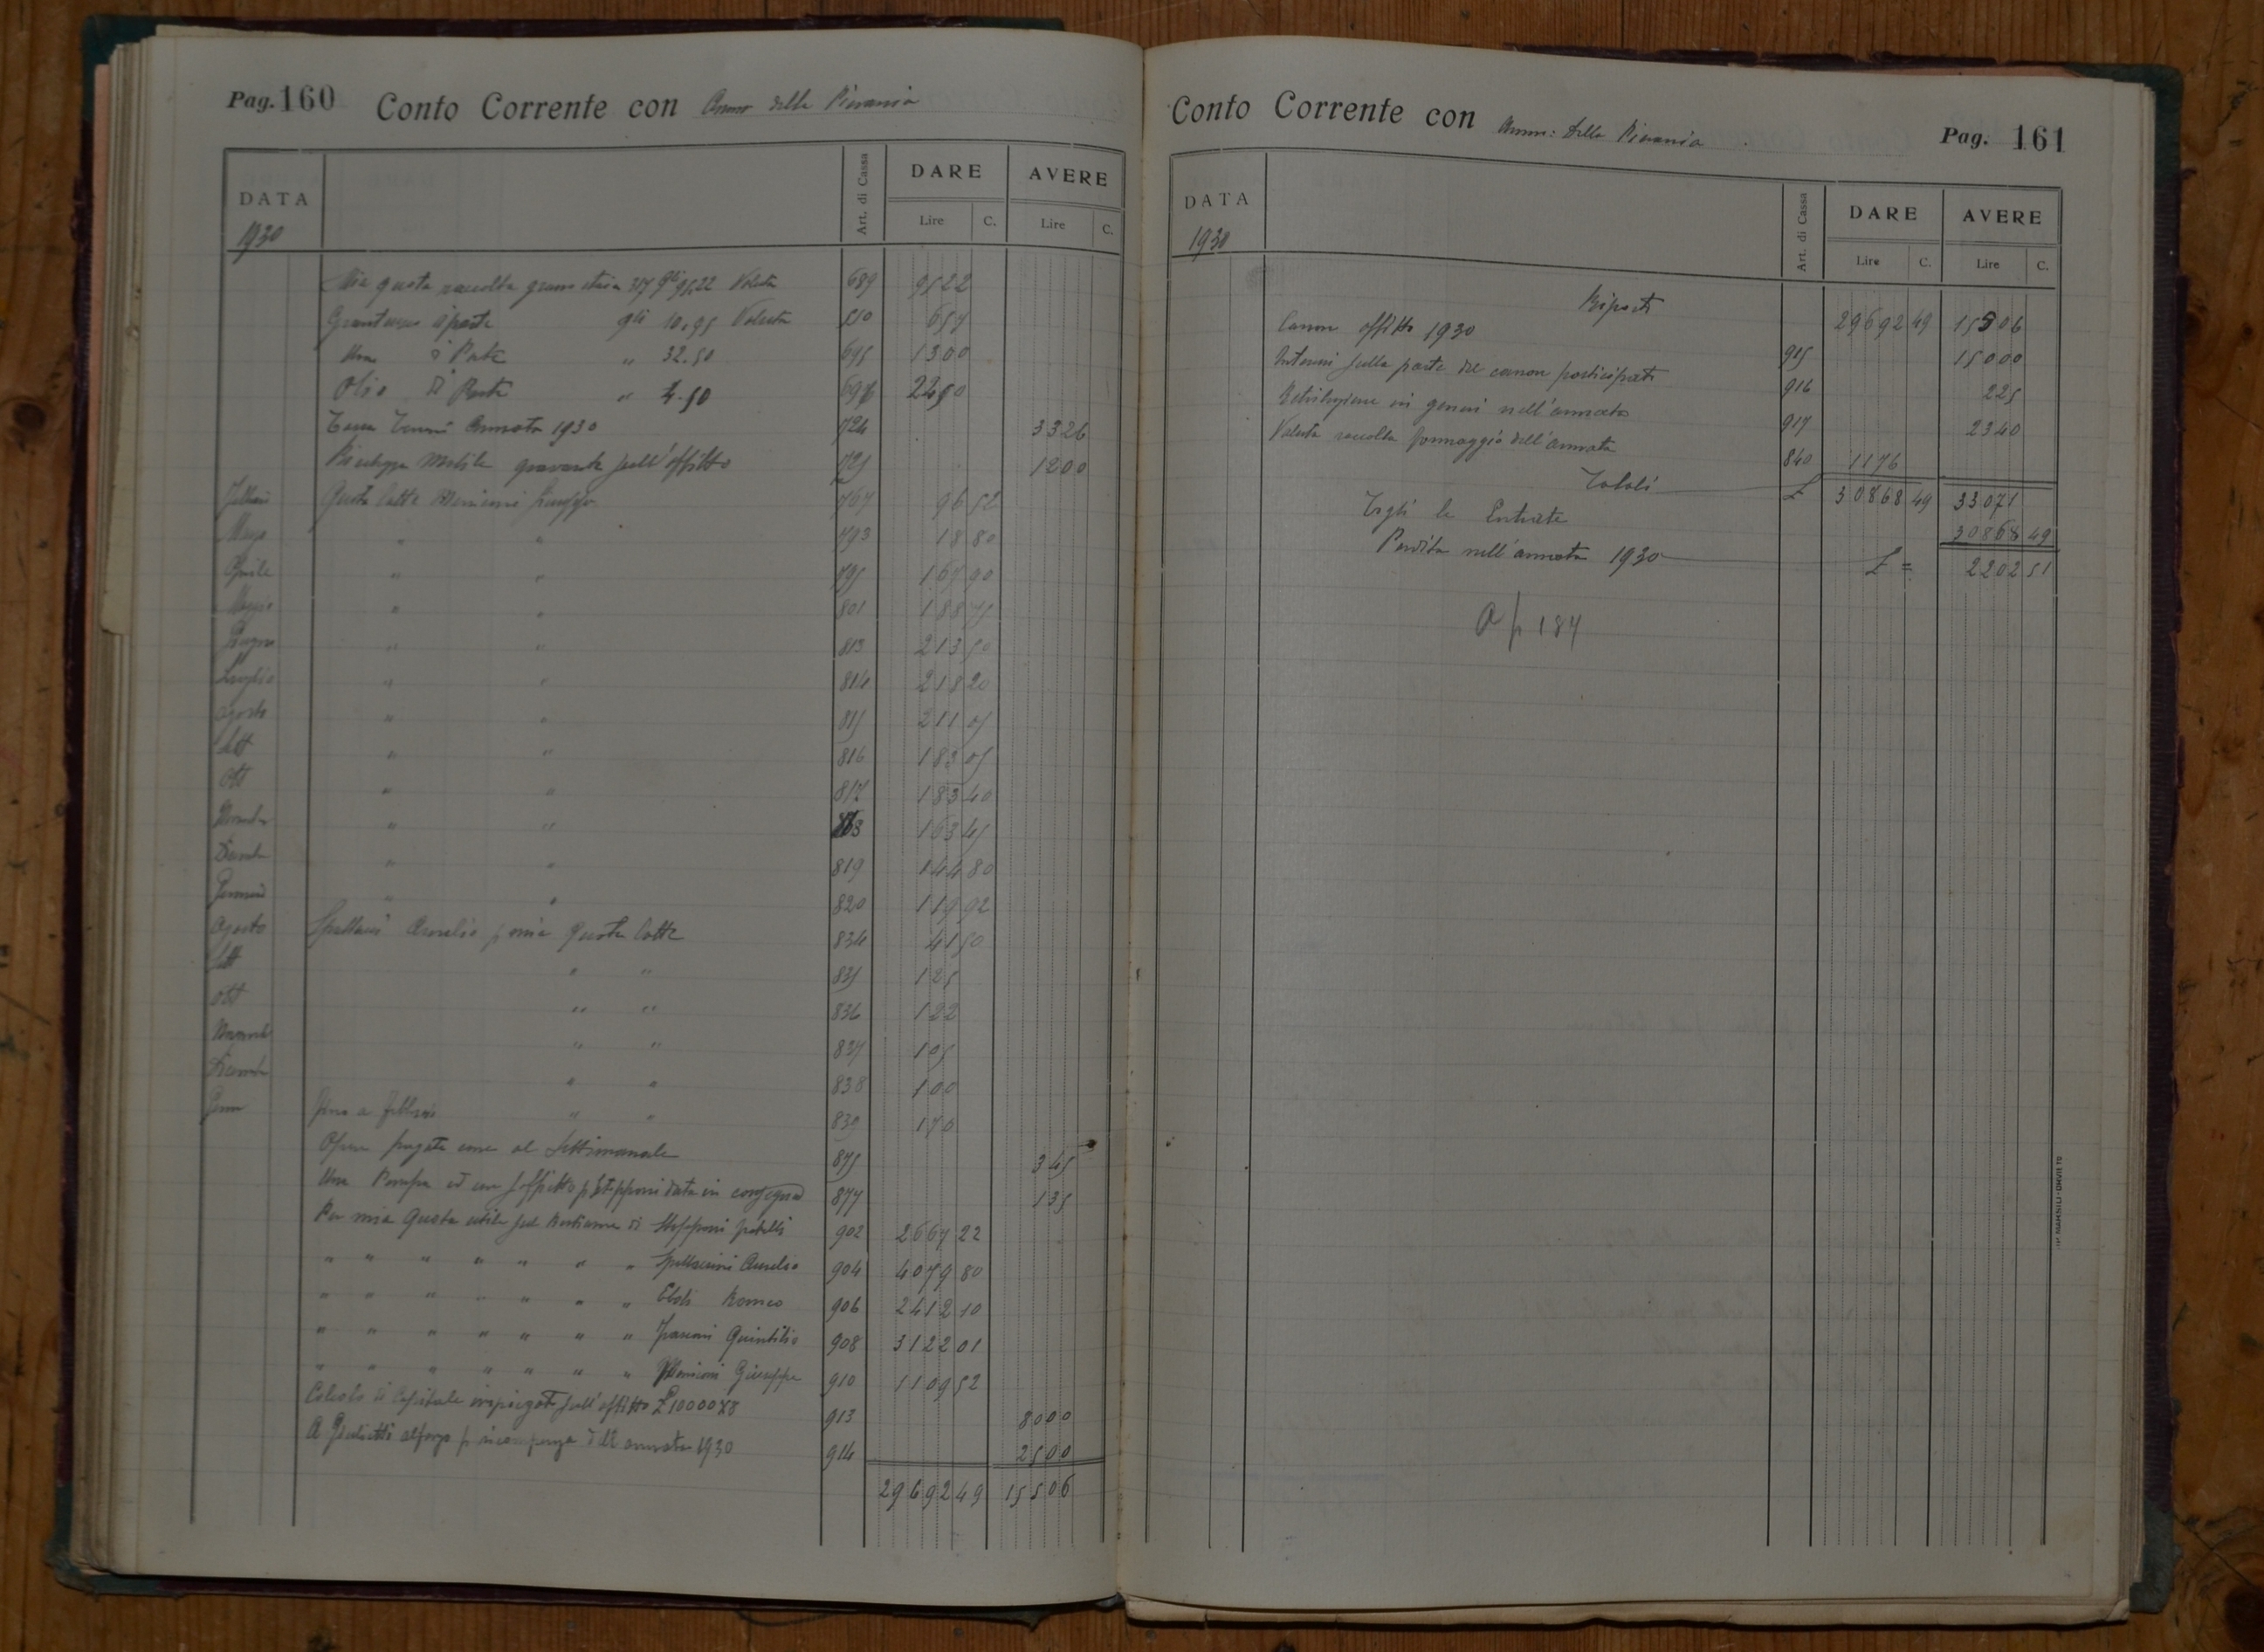 Pag. 160 Conto Corrente con Amm della Pievania
DATA Art. di Cassa DARE AVERE
Lire C. Lire C.
1930
Mia quota raccolta grano staia 317 qli 95,22 Valuta 689 9522
Granturco di parte qli 10.95 Valuta 657
Uva di Parte " 32.50 695 1300
Olio di Parte " 4.50 696 2250
Tassa Terreni Annata 1930 724 3326
Ricchezza Mobile gravante sull'affitto 725 1200
Febbraio Quota latte Giuseppe 767 96 52
Marzo " " 793 18 80
Aprile " " 795 167 90
Maggio " " 801 188 75
Giugno " " 813 213 50
Luglio " " 814 218 20
Agosto " " 815 211 05
Sett " " 816 183 05
Ott " " 817 183 40
Novembr " " 163 45
Dicemb " " 819 144 80
Gennaio " " 820 119 92
Agosto Aurelio p mia quota latte 834 41 50
Sett " " 835 125
Ott " " 836 122
Novemb " " 837 105
Dicemb " " 838 100
Genn fino a Febbraio " " 839 170
Opere pagate come al Settimanale 875 345
Una Pompa ed un data in consegna 877 135
Per mia Quota utile sul Bestiame di fratelli 902 2667 22
" " " " " " " Aurelio 904 4079 80
" " " " " " " Romeo 906 2412 10
" " " " " " " Quintilio 908 3122 01
" " " " " " " Giuseppe 910 1109 52
di Capitale impiegato sull'affitto £ 913 8000
A p ricompenza dell annata 1930 914 2500
29692 49 15506
Conto Corrente con Amm: della Pievania Pag. 161
DATA Art. di Cassa DARE AVERE
Lire C. Lire C.
1930
Riporti 29692 49 15506
Canone affitto 1930 915 15000
Interessi sulla parte del canone 916 225
Retribuzione in generi nell'annata 917 2340
Valuta raccolta formaggio dell'annata 840 1176
Totali £ 30868 49 33071
Togli le Entrate 30868 49
Perdita nell'annata 1930 £ = 2202 51
A p 187
TIP. MARSILI - ORVIETO